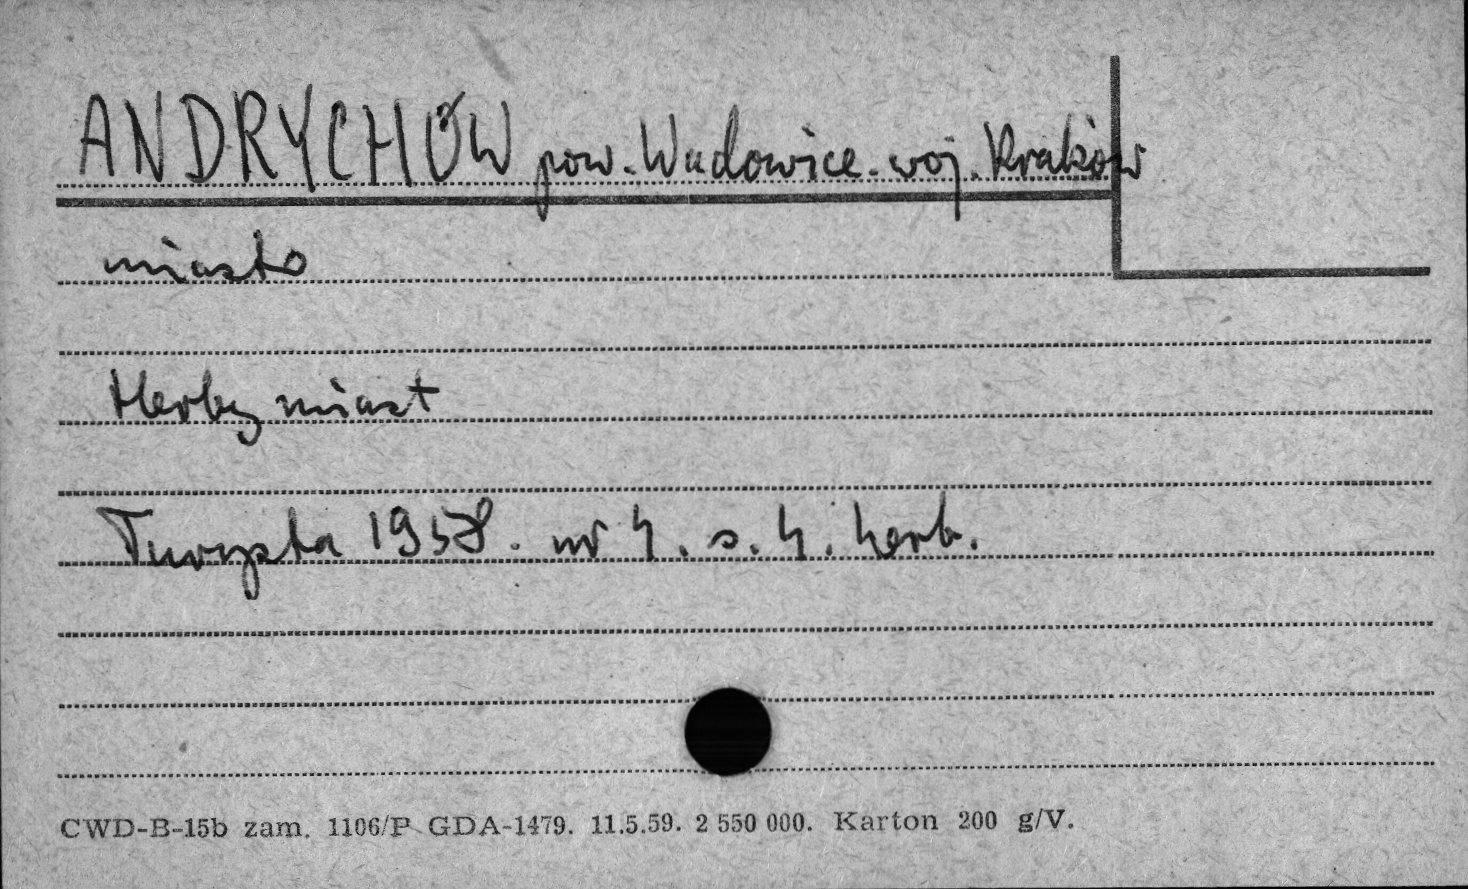 ANDRYCHÓW pow. Wadowice. woj. Kraków
miasto
Herby miast
Turysta 1958. nr 4. s. 4. herb.
CWD-B-15b zam. 1106/P GDA-1479. 11.5.59. 2 550 000. Karton 200 g/V.